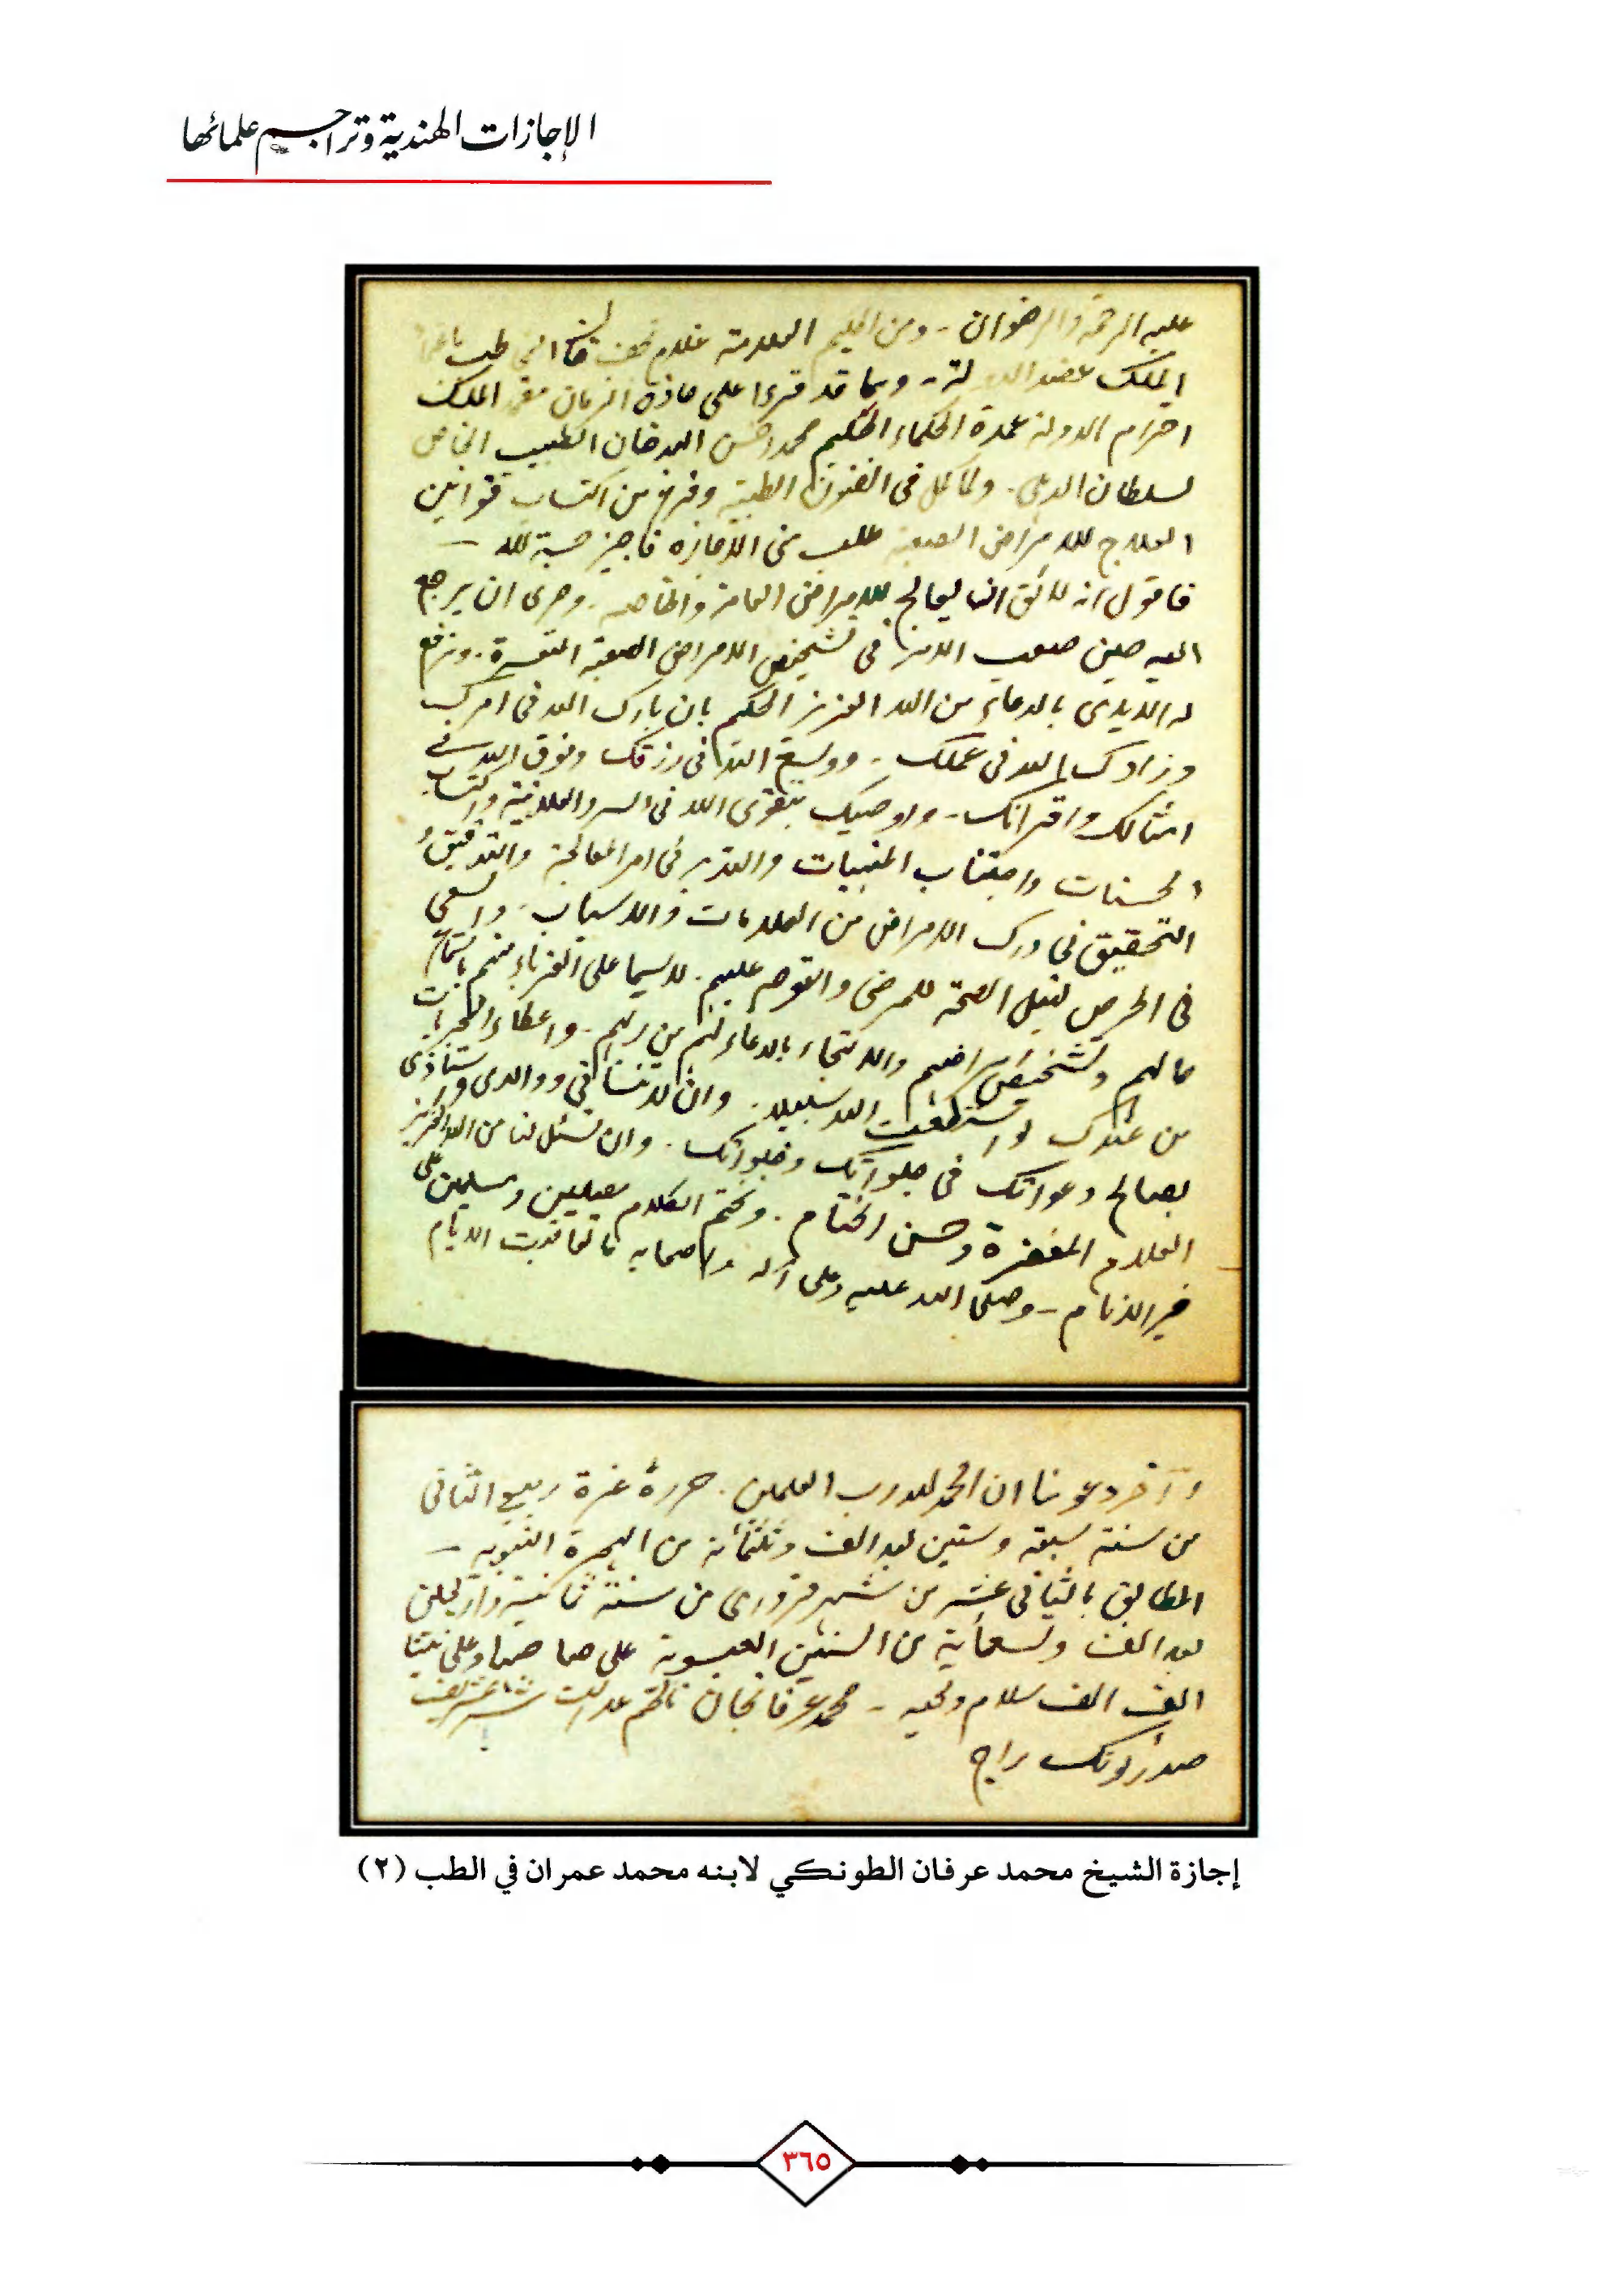 الإجازات الهندية وتراجيم علمائها
عليه الرحمة والرضوان - ومن الحكيم العلامة غلام نجف خان
الملك عضد الدولة - وبما قد قرءا على حاذق الزمان الملك
احترام الدولة عمدة الحكماء الحكيم محمد احسن الله خان الطبيب الخاص
لسلطان الدهلي - ولما كمل في الفنون الطبية وفرغ من اكتساب قوانين
العلاج للامراض الصعبة طلب منى الاجازة فاجيز حسبة لله
فاقول انه لائق ان يعالج للامراض العامة والخاصه - وحرى ان يرجع
اليه حين صعب الامر في تشخيص الامراض الصعبة المتعسرة - ونرفع
له الايدى بالدعاء من الله العزيز الحكيم بان بارك الله في امرك
وزادك الله في عملك - ووسع الله في رزقك وفوق الله في
امثالك واقرانك - واوصيك بتقوى الله في السر والعلانية واكتساب
الحسنات واجتناب المنهيات والتدبر في امر المعالجة والتدقيق و
التحقيق في درك الامراض من العلامات والاسباب - والسعى
في الحرص لنيل الصحة للمرضى والتوجه عليهم - لاسيما على الغرباء منهم باستماع
حالهم وتشخيص امراضهم والالتجاء بالدعاء لهم من ربهم - واعطاء المجربات
من عندك لو استطعت اليه سبيلا - وان لا تنسانى ووالدى واستاذى
بصالح دعواتك في جلواتك وخلواتك - وان تسئل لنا من الله العزيز
العلام المغفرة وحسن الختام - ونختم الكلام مصليين ومسلمين على
خير الانام - وصلى الله عليه وعلى آله واصحابه ما تعاقبت الايام
وآخر دعونا ان الحمد لله رب العلمين - حرره غرة ربيع الثانى
من سنة سبعة وستين بعد الف وثلثمائة من الهجرة النبويه
المطابق بالثانى عشر من شهر فرورى من سنة ثمانية واربعين
بعد الف وتسعماية من السنين العيسوية على صاحبها وعلى نبينا
الف الف سلام وتحيه - محمد عرفان خان ناظم عدالت شرع شريف
صدر ٹونک راج
إجازة الشيخ محمد عرفان الطونكي لابنه محمد عمران في الطب (٢)
٣٦٥